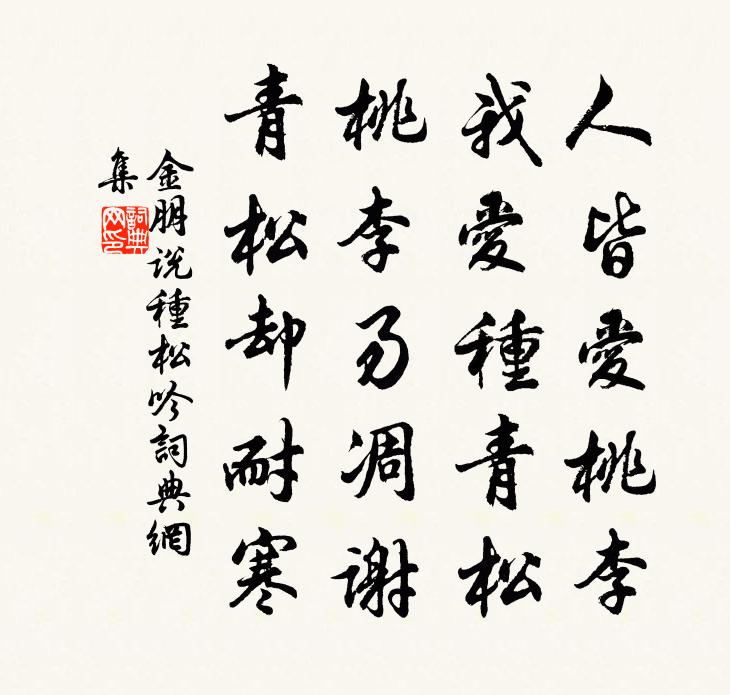 人皆愛桃李
我愛種青松
桃李易凋謝
青松却耐寒
金朋说種松吟詞典網
集
詞典
网印